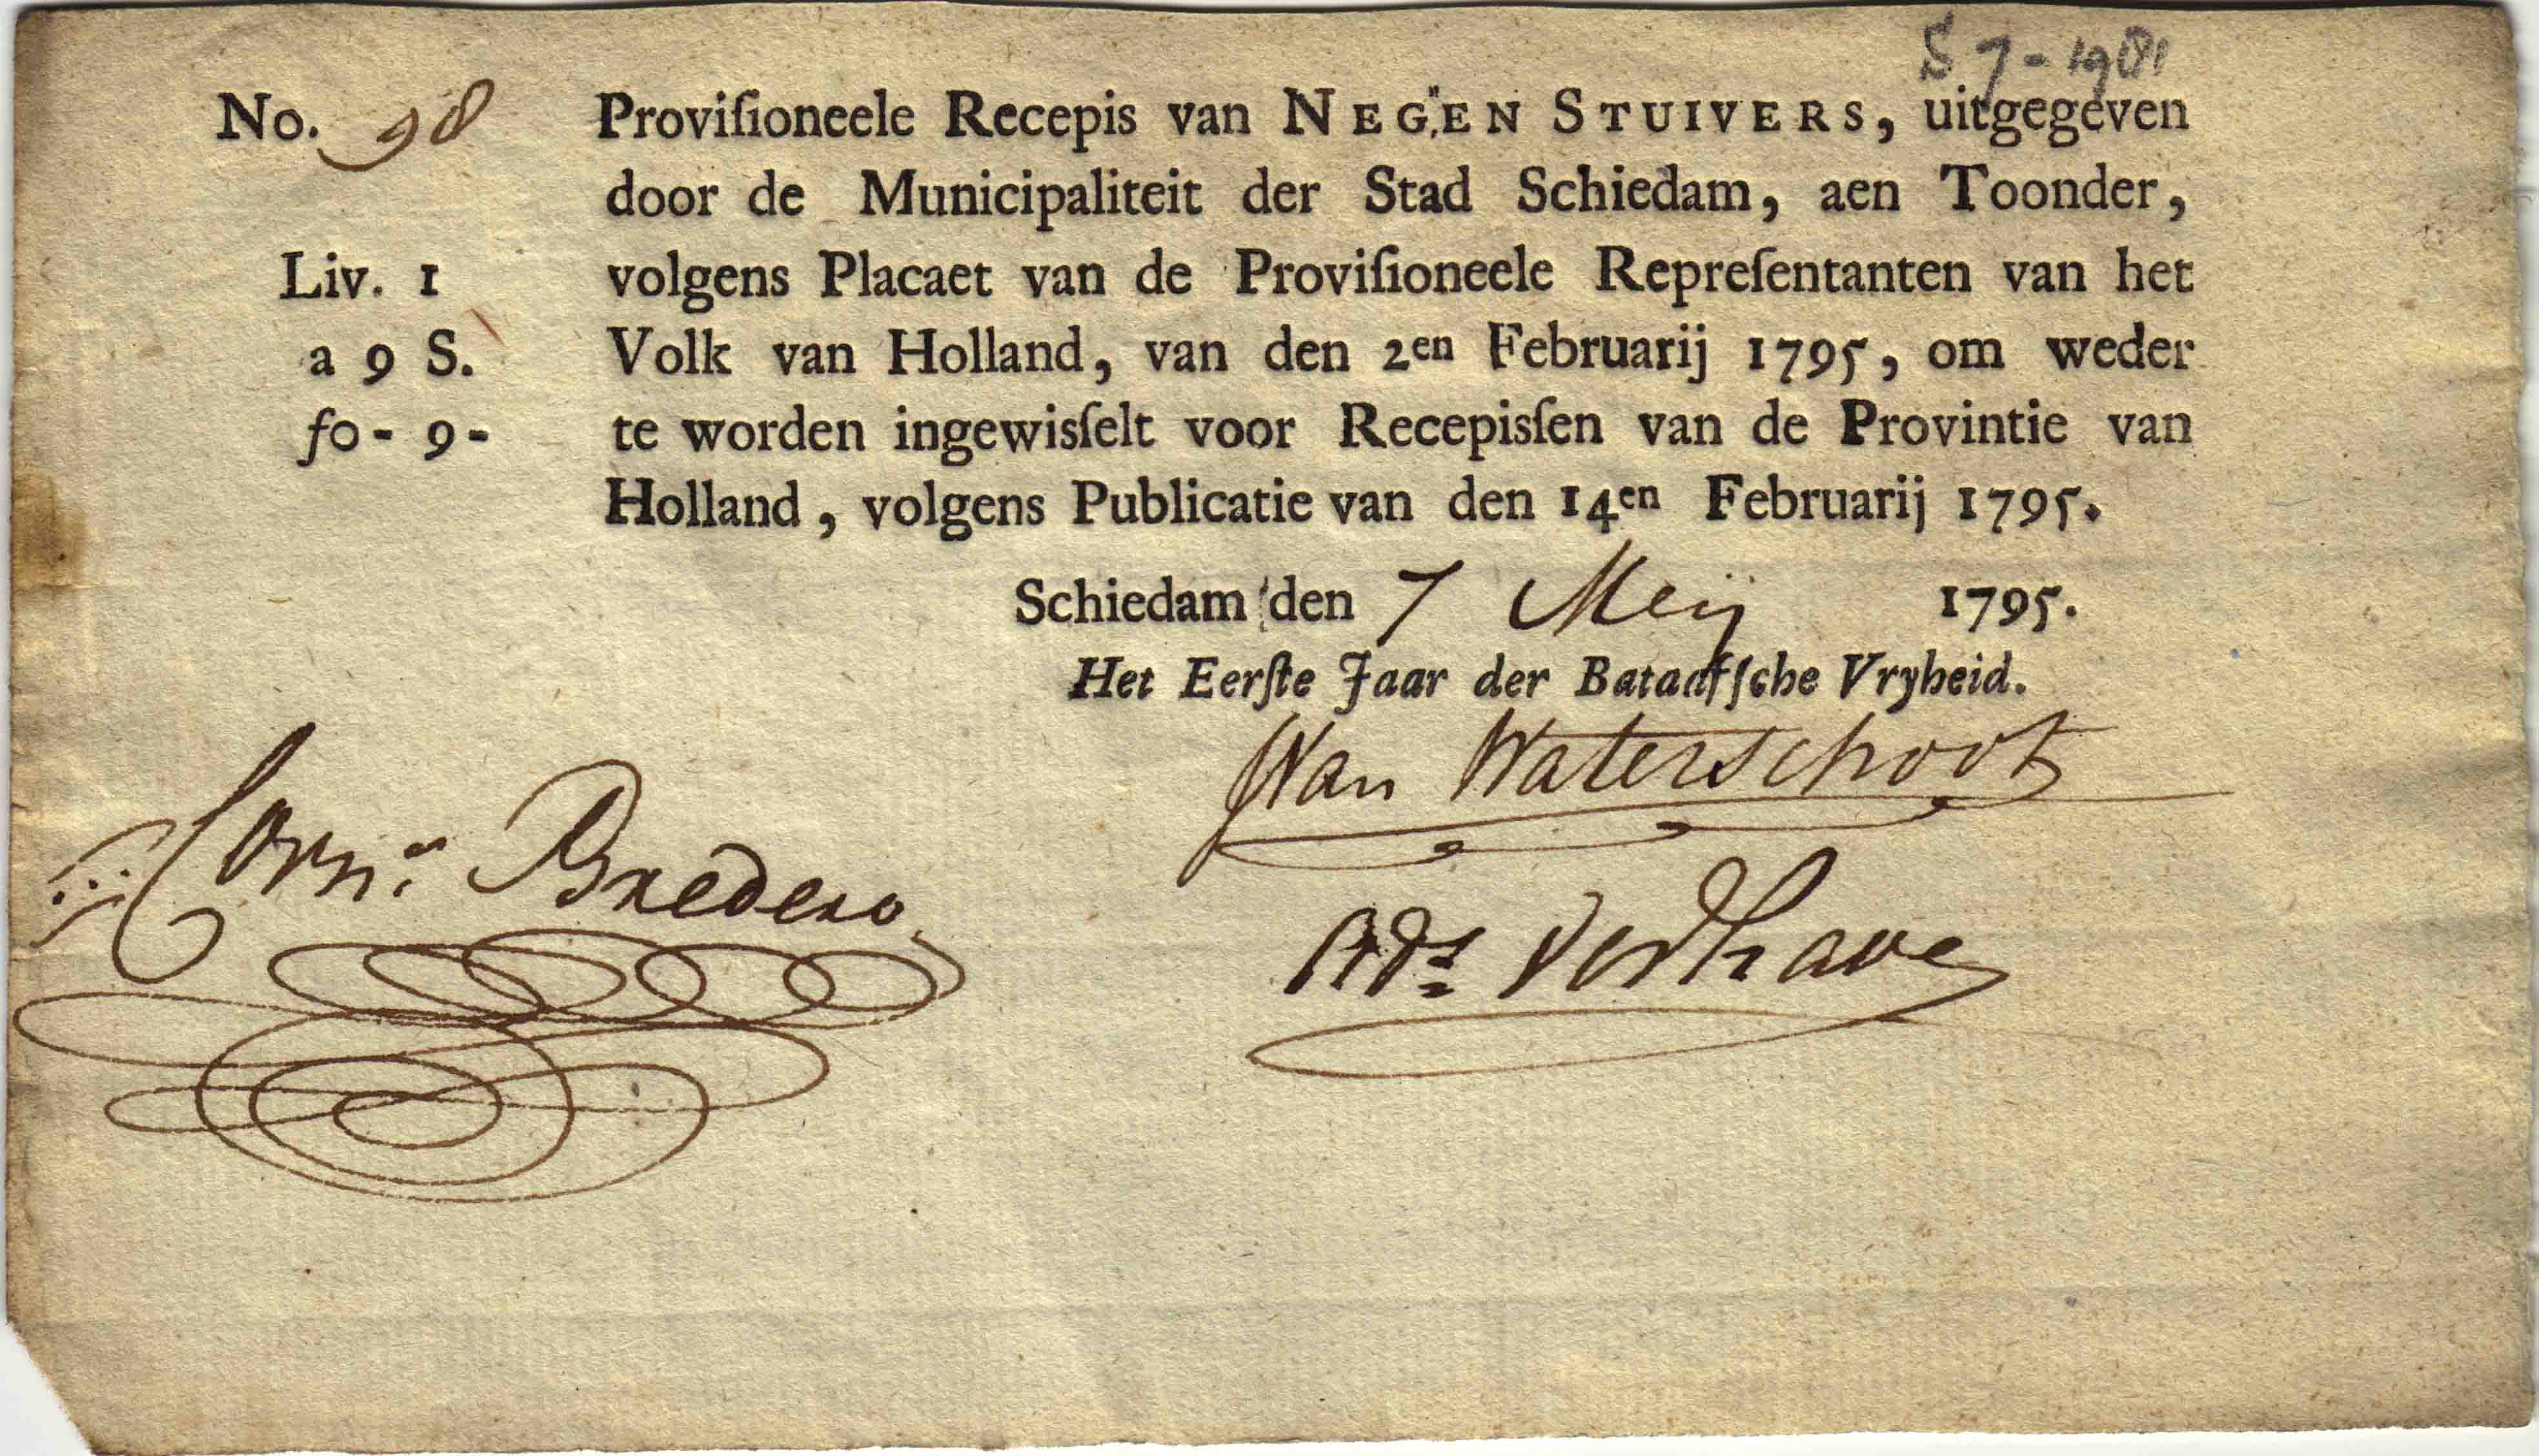 S 7 - 1981
No. 98 Proviſioneele Recepis van NEGEN STUIVERS, uitgegeven
door de Municipaliteit der Stad Schiedam, aen Toonder,
Liv. 1 volgens Placaet van de Proviſioneele Repreſentanten van het
a 9 S. Volk van Holland, van den 2en Februarij 1795, om weder
fo - 9 - te worden ingewisſelt voor Recepisſen van de Provintie van
Holland, volgens Publicatie van den 14en Februarij 1795.
Schiedam den 7 Meij 1795.
Het Eerſte Jaar der Bataafſche Vryheid.
Van Waterschoot
Corn.s Bredero
Ads Verhave